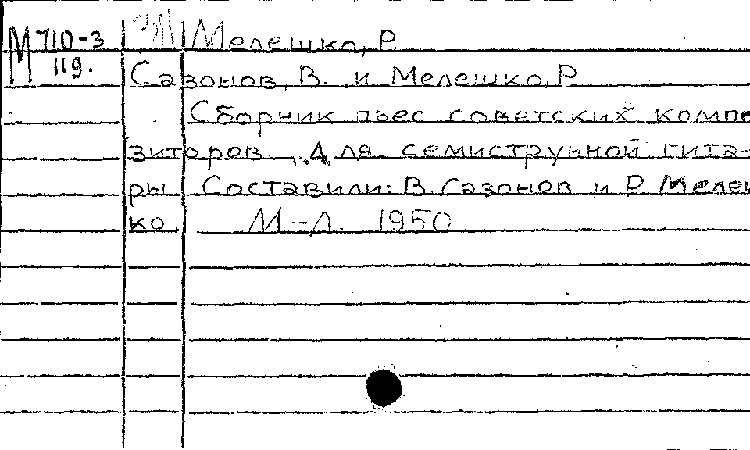 М 710-3 Мелешко, Р
119.
Сазонов, В. и Мелешко, Р
Сборник пьес советских компо
зиторов. Для семиструнной гита-
ры Составили: В. Сазонов и Р Мелеш
ко. М-Л. 1950